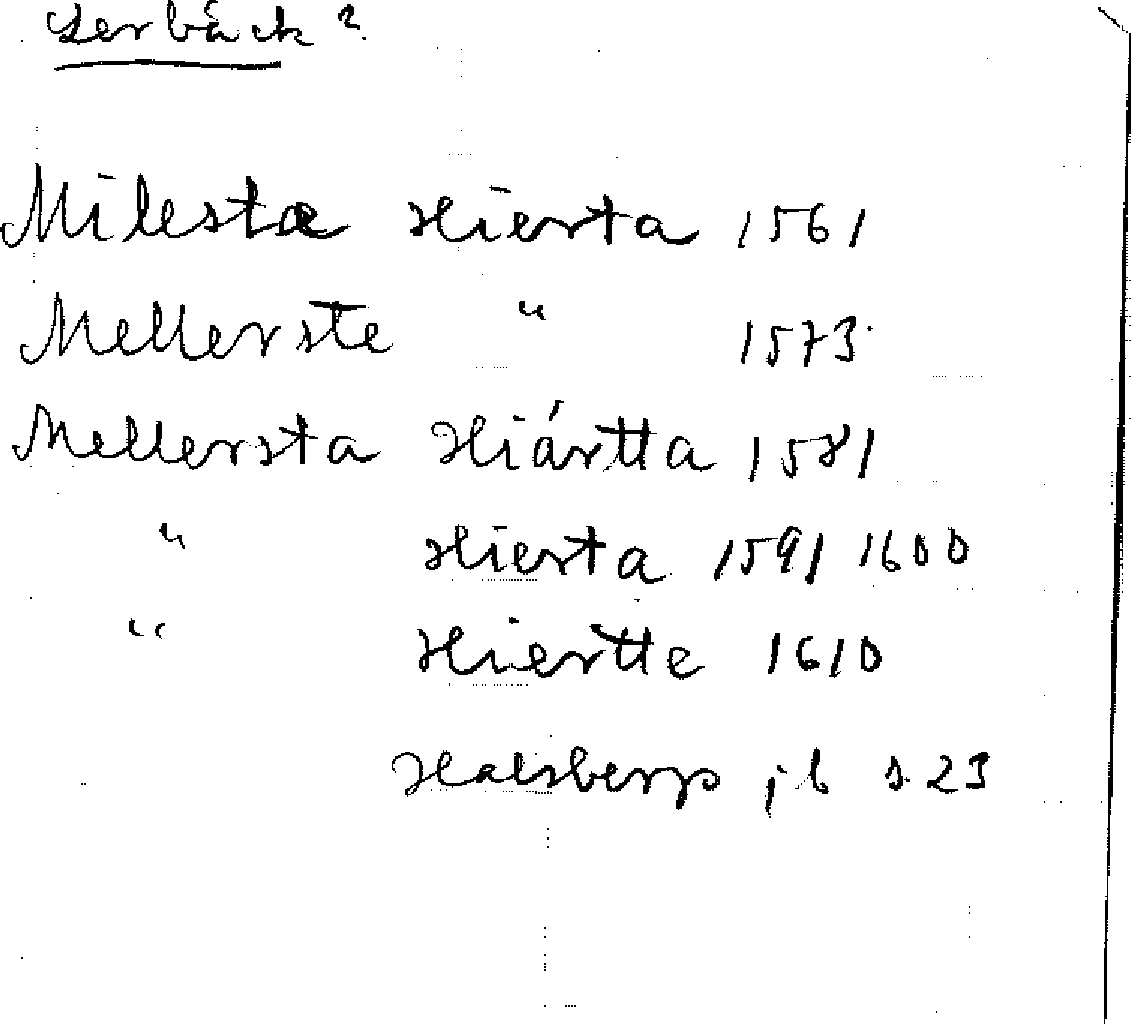 Lerbäck ?
Milesta Hierta 1561
Mellerste " 1573
Mellersta Hiártta 1581
" Hierta 1591 1600
" Hiertte 1610
Halsberg jb s 23